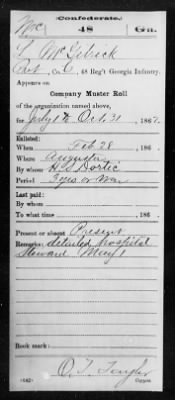 (Confederate.)
Mc 48 Ga.
L McGibrick
Pvt, Co. , 48 Reg't Georgia Infantry.
Appears on
Company Muster Roll
of the organization named above,
for July 1 to Oct. 31, 186 .
Enlisted:
When Feb 28, 186 .
Where Augusta
By whom
Period 3 yrs or War
Last paid:
By whom
To what time , 186 .
Present or absent Present
Remarks: detailed hospital
Steward May 1
Book mark:
(642) Copyist.